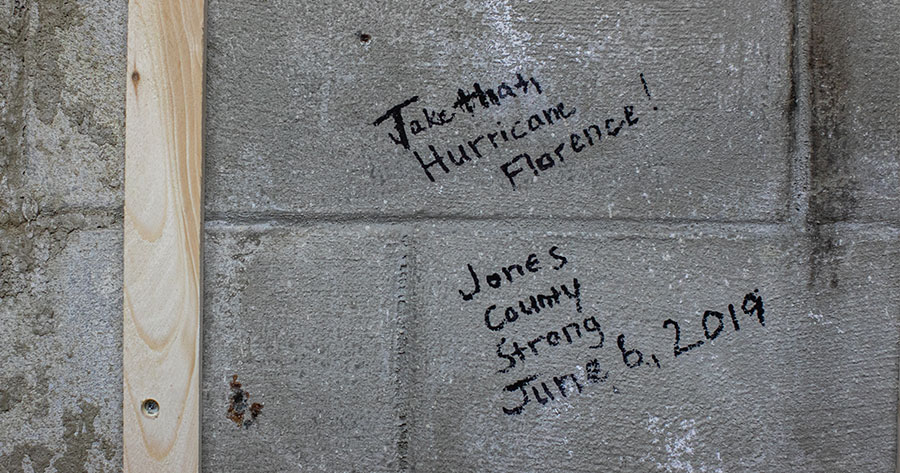 Take that,
Hurricane
Florence!
Jones
County
Strong
June 6, 2019